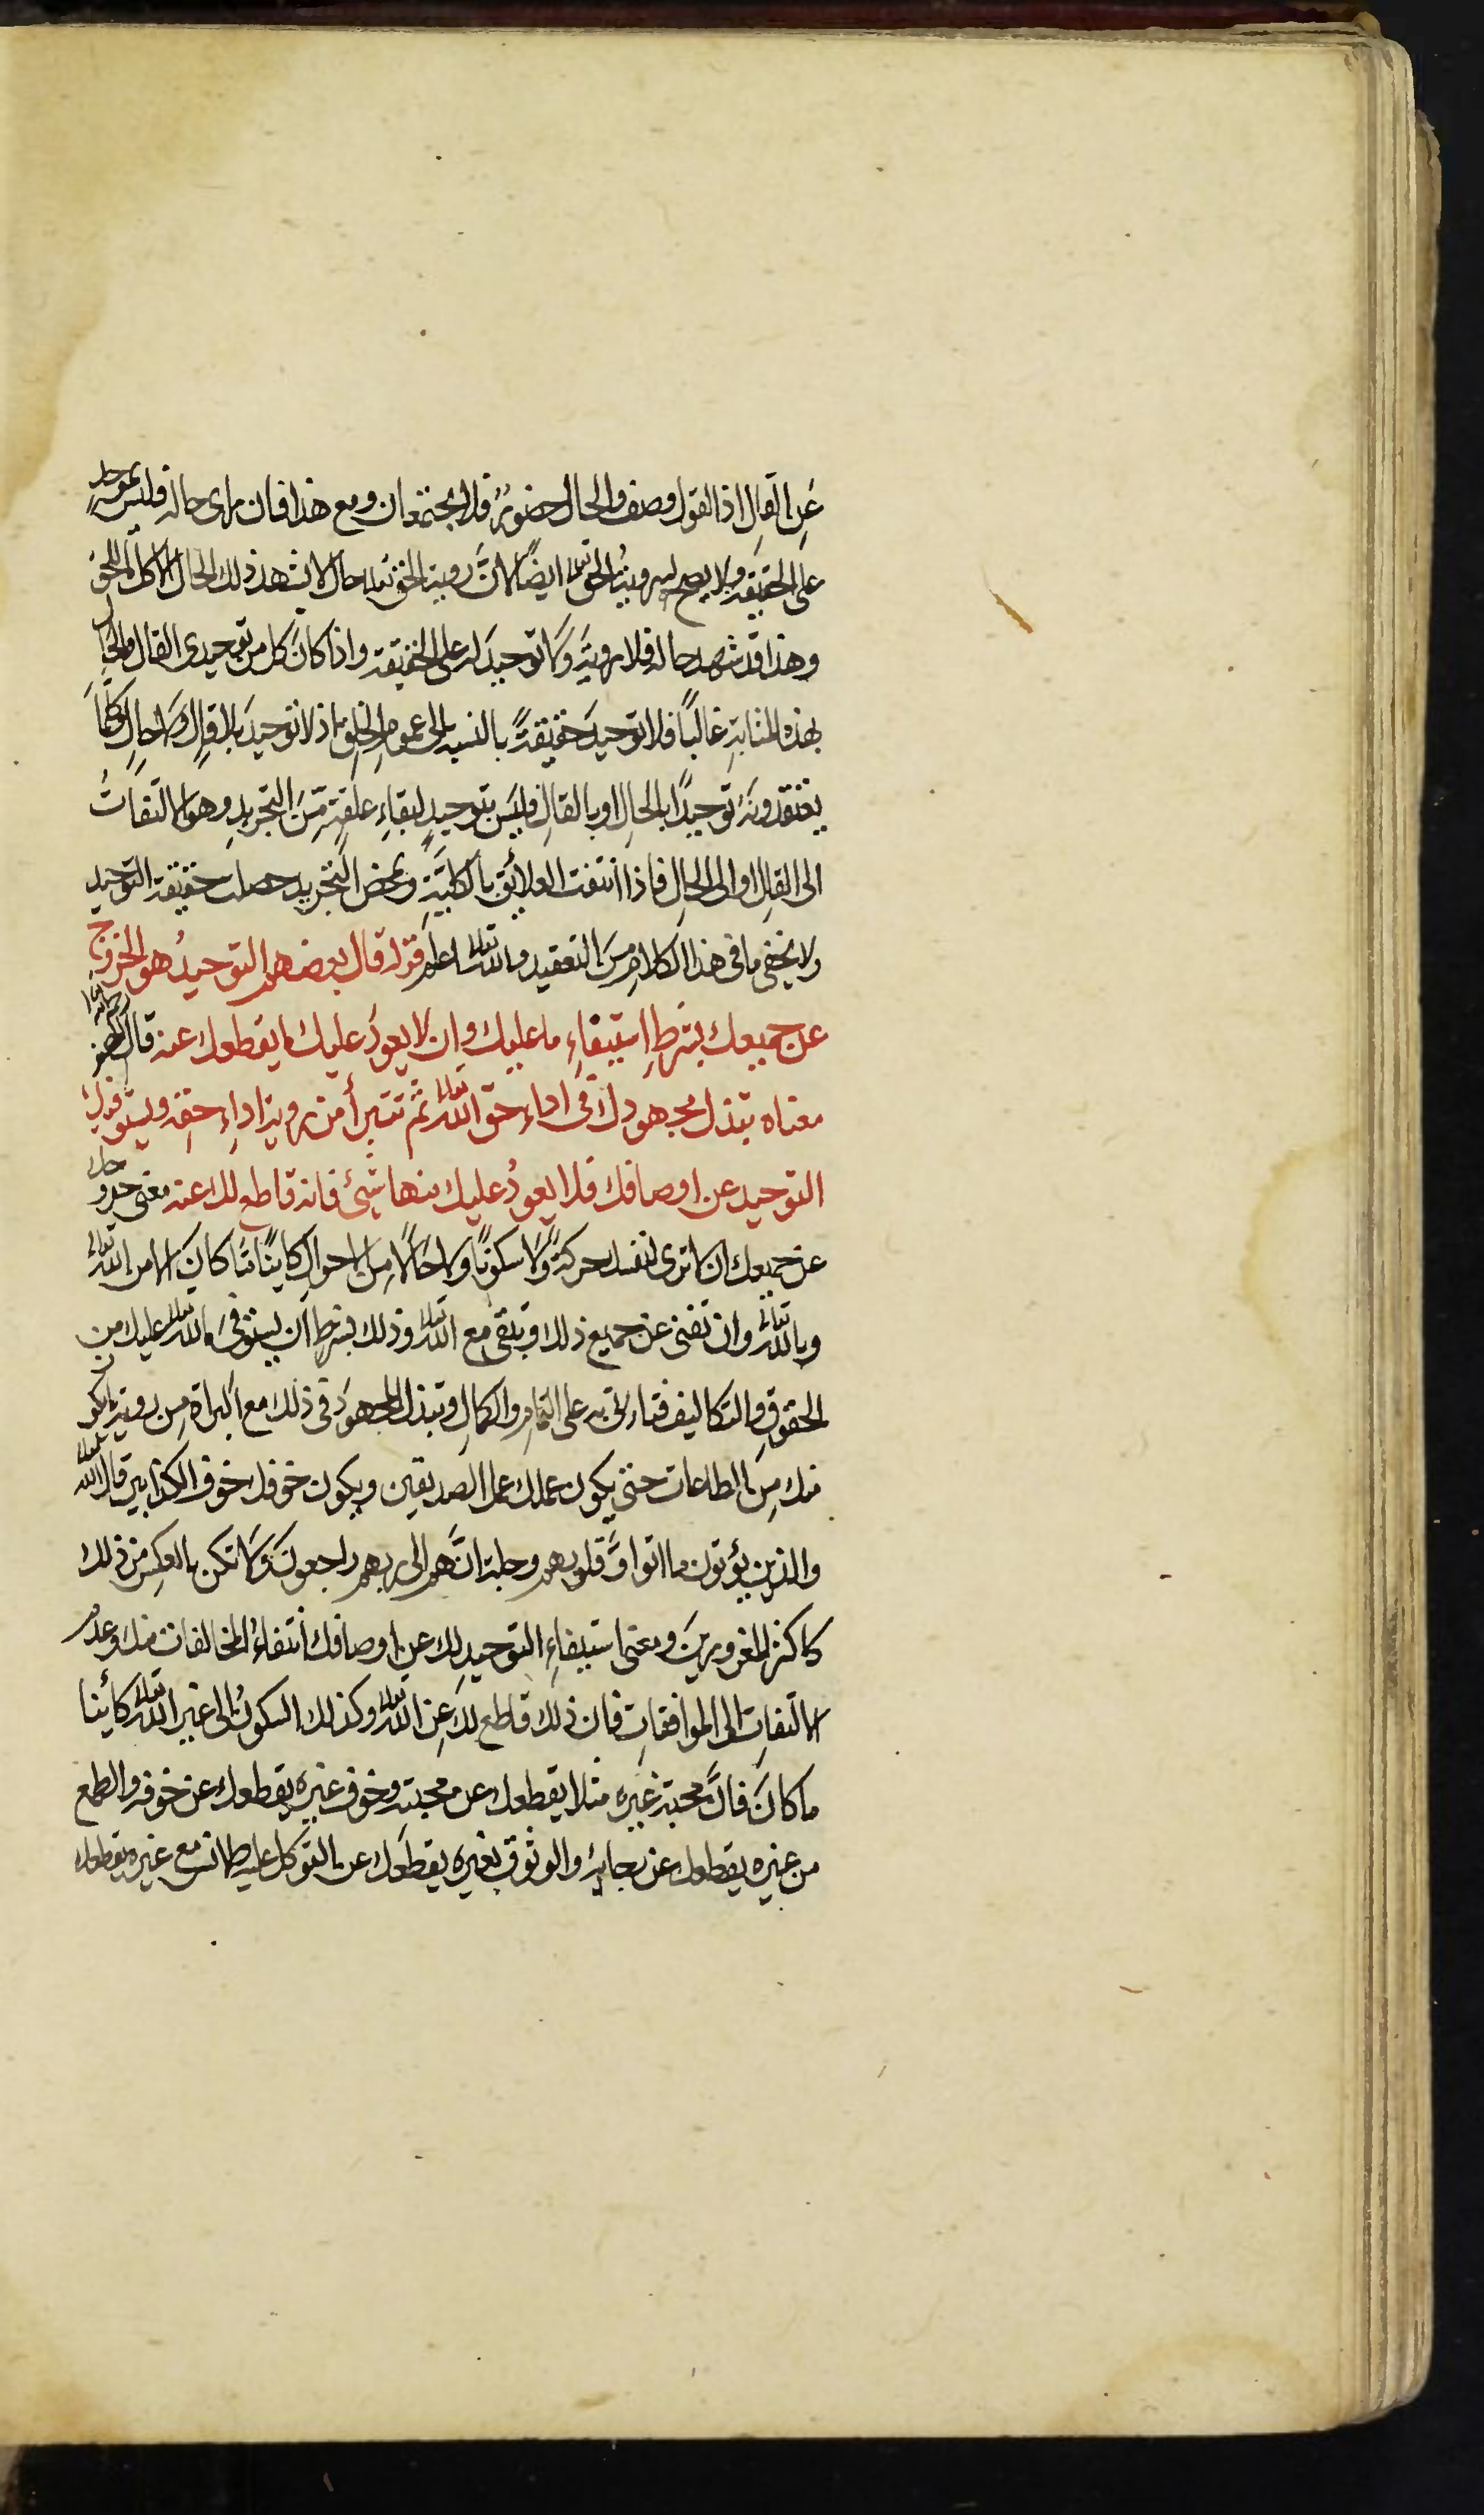 عَنِ القالِ اذ القول وصف والحال حضورٌ فلا يجتمعان ومع هذا فان راى حاله فليس بموحدٍ
على الحقيقة ولا يصح له رويةُ الحق تعالى ايضًا لانَّ روية الحق تعالى حال لا يشهد ذلك الحال الا كل للحق
وهذا قد شهد حاله فلا رويةَ ولا توحيدَ له على الحقيقة واذا كانَ كل من توحيدى القال والحال
بهذه المثابةِ غالبًا فلا توحيدَ حقيقةً بالنسبه الى عمومِ الخلقِ اذ لا توحيدَ بلا قالٍ ولا حالٍ وكلما
يعتقدونَهُ توحيدًا بالحالِ او بالقالِ فليسَ بتوحيدٍ لبقاءِ علقةٍ مِّنَ التجريدِ وهو الالتفاتُ
الى القالِ او الى الحالِ فاذا انتفت العلائق بالكليَّةِ وبمحض التجريد حصلت حقيقة التوحيد
ولا يخفى ما فى هذا الكلامِ مِنَ التعقيد والله تعالى اعلم قوله قال بعضهم التوحيدُ هو الخروج
عن جميعك بشرطِ استيفاءِ ما عليك وان لا يعودَ عليك ما يقطعك عنه قال
معناه تبذل مجهودك فى اداء حق الله تعالى ثم تتبرأ من روية اداءِ حقِه ويستوفيك
التوحيد عن اوصافك فلا يعودُ عليك منها شيئ فانه قاطع لك عنه معنى خروجك
عن جميعك ان لا ترى لنفسك حركةً ولا سكونًا ولا حالًا مِن الاحوالِ كاينًا مَّا كانَ الا من الله تعالى
وبالله تعالى وان تفنى عن جميع ذلك وتبقى مع الله تعالى وذلك بشرط ان يستوفىَ الله تعالى عليك من
الحقوقِ والتكاليف فتاءتى به على التمامِ والكمالِ وتبذل المجهودَ فى ذلك مع البراةِ مِن روية ما يكون
منك مِن الطاعات حتى يكون عملك عمل الصديقين ويكون خوفك خوف الكذابين قال الله تعالى
والذين يؤتون ما اتوا وَّقلوبهم وجلة انَّهم الى ربهم راجعونَ ولا تكن بالعكسِ من ذلك
كاكثر المغرورينَ ومعنى استيفاءِ التوحيدِ لك عن اوصافك انتفاءُ المخالفات منك وعدم
الالتفاتِ الى الموافقاتِ فان ذلك قاطع لك عنِ الله تعالى وكذلك السكونُ الى غير الله تعالى كائنا
ما كانَ فانَّ محبةَ غيرِه مثلا يقطعك عن محبته وخوف غيرِه يقطعك عن خوفه والطمع
من غيره يقطعك عن رجايه والوثوق بغيره يقطعَك عن التوكل عليه مع غيره يقطعك